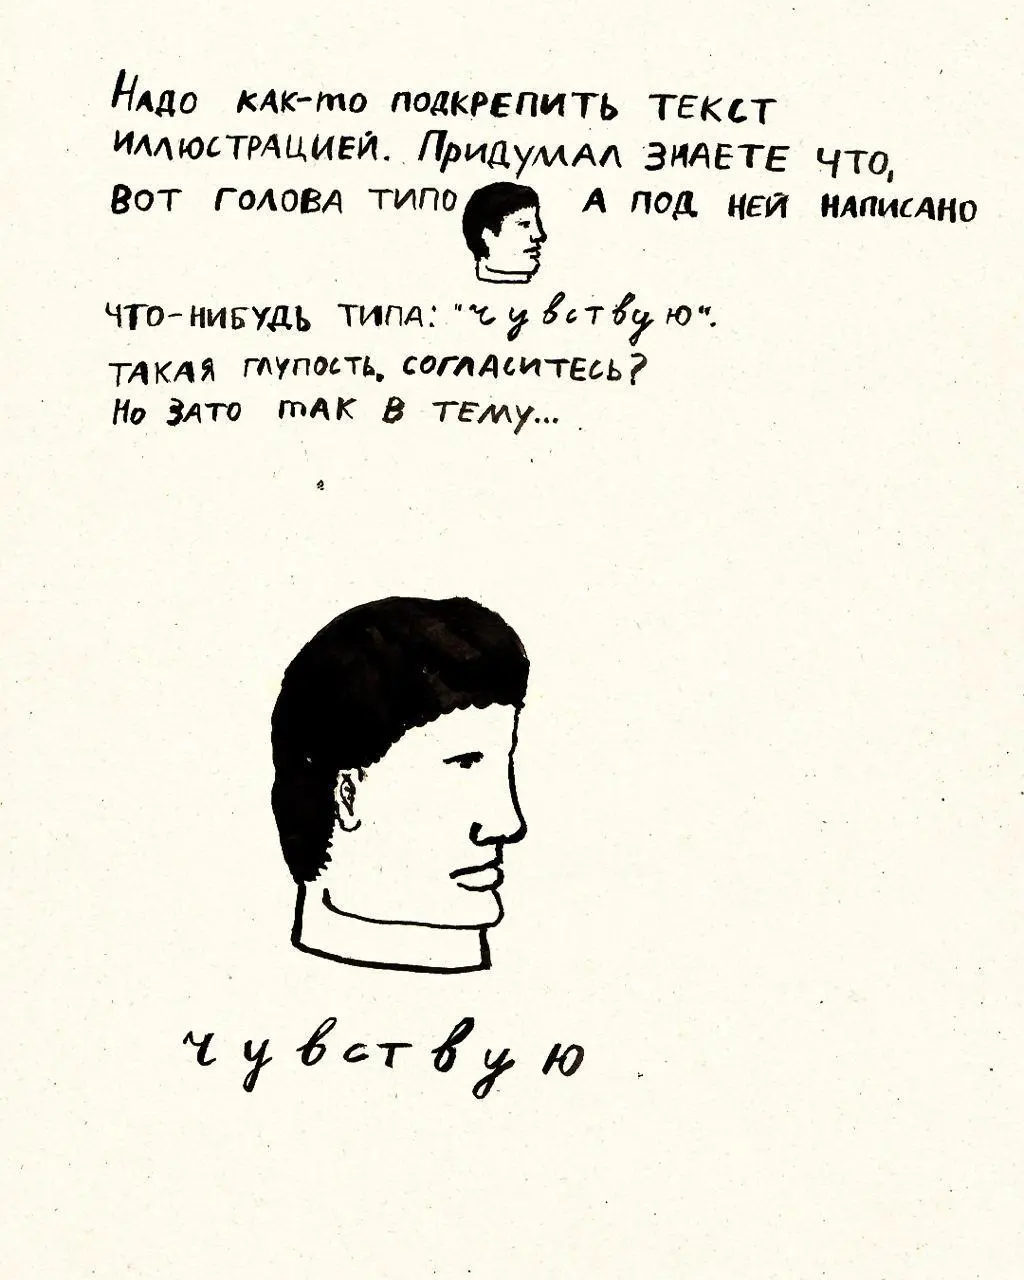 Надо как-то подкрепить текст
иллюстрацией. Придумал знаете что,
вот голова типо а под ней написано
что-нибудь типа: "чувствую".
Такая глупость, согласитесь?
Но зато так в тему...
чувствую